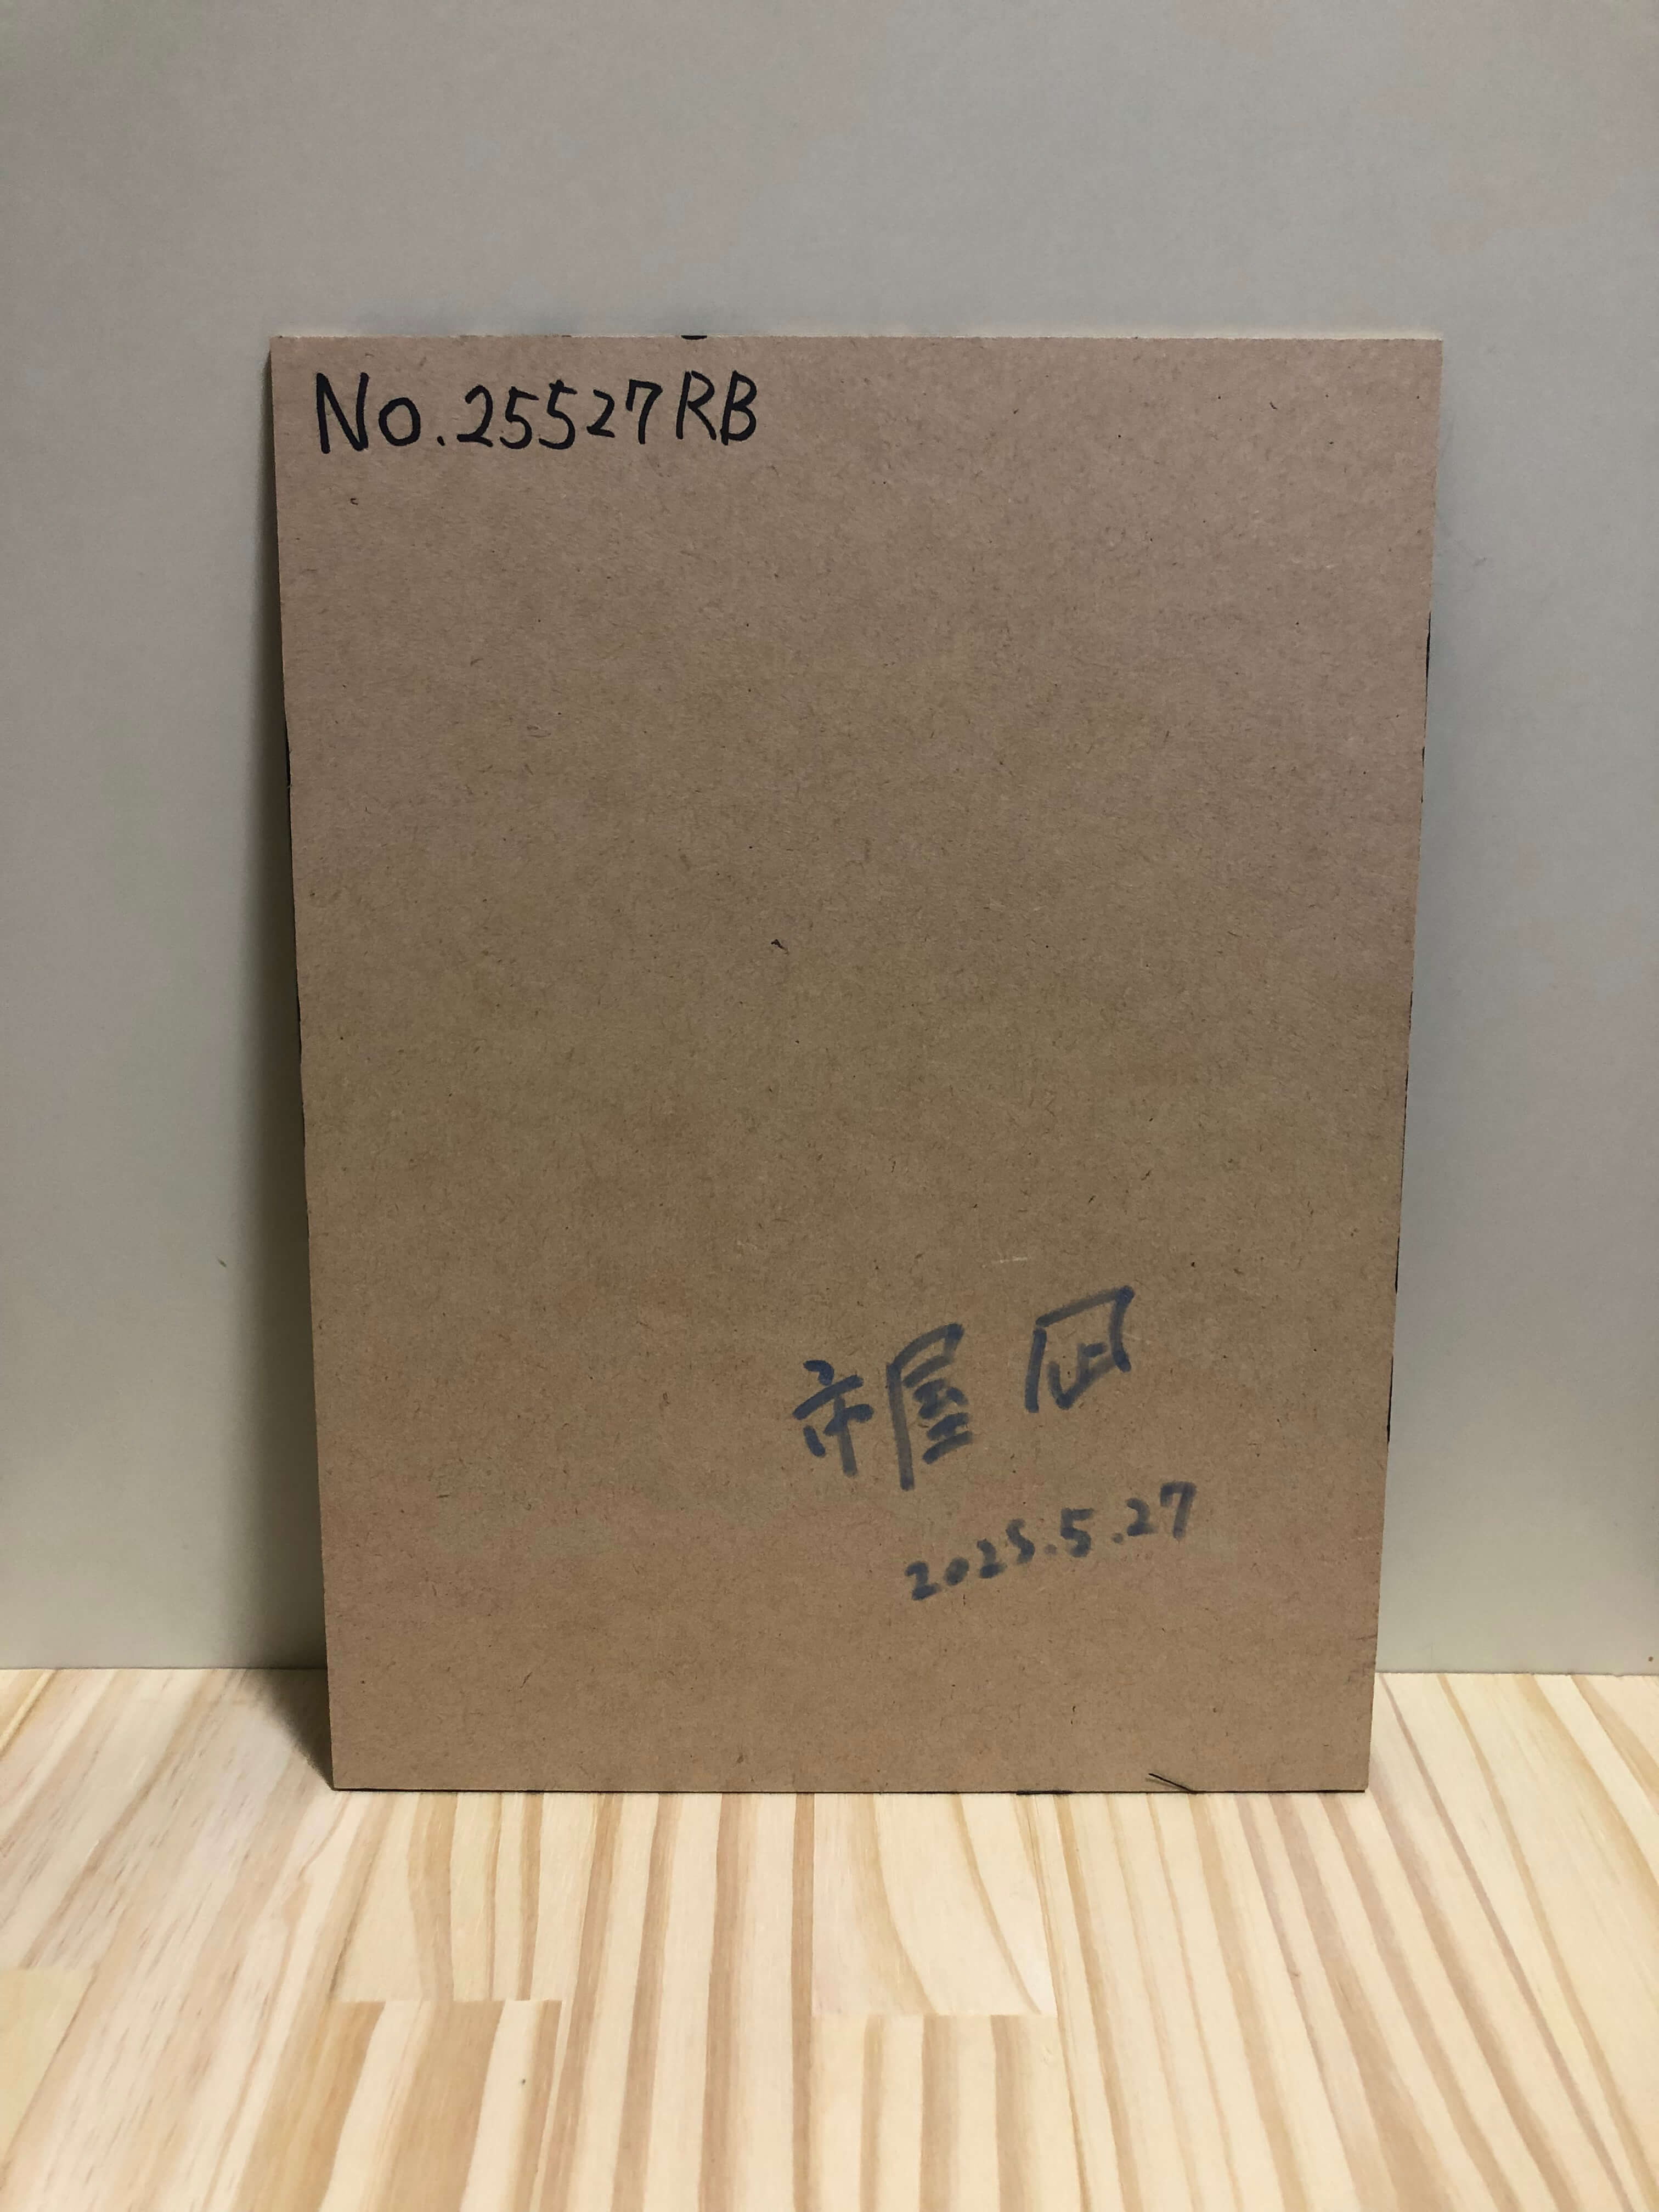 No.25527RB
市屋 凪
2025.5.27